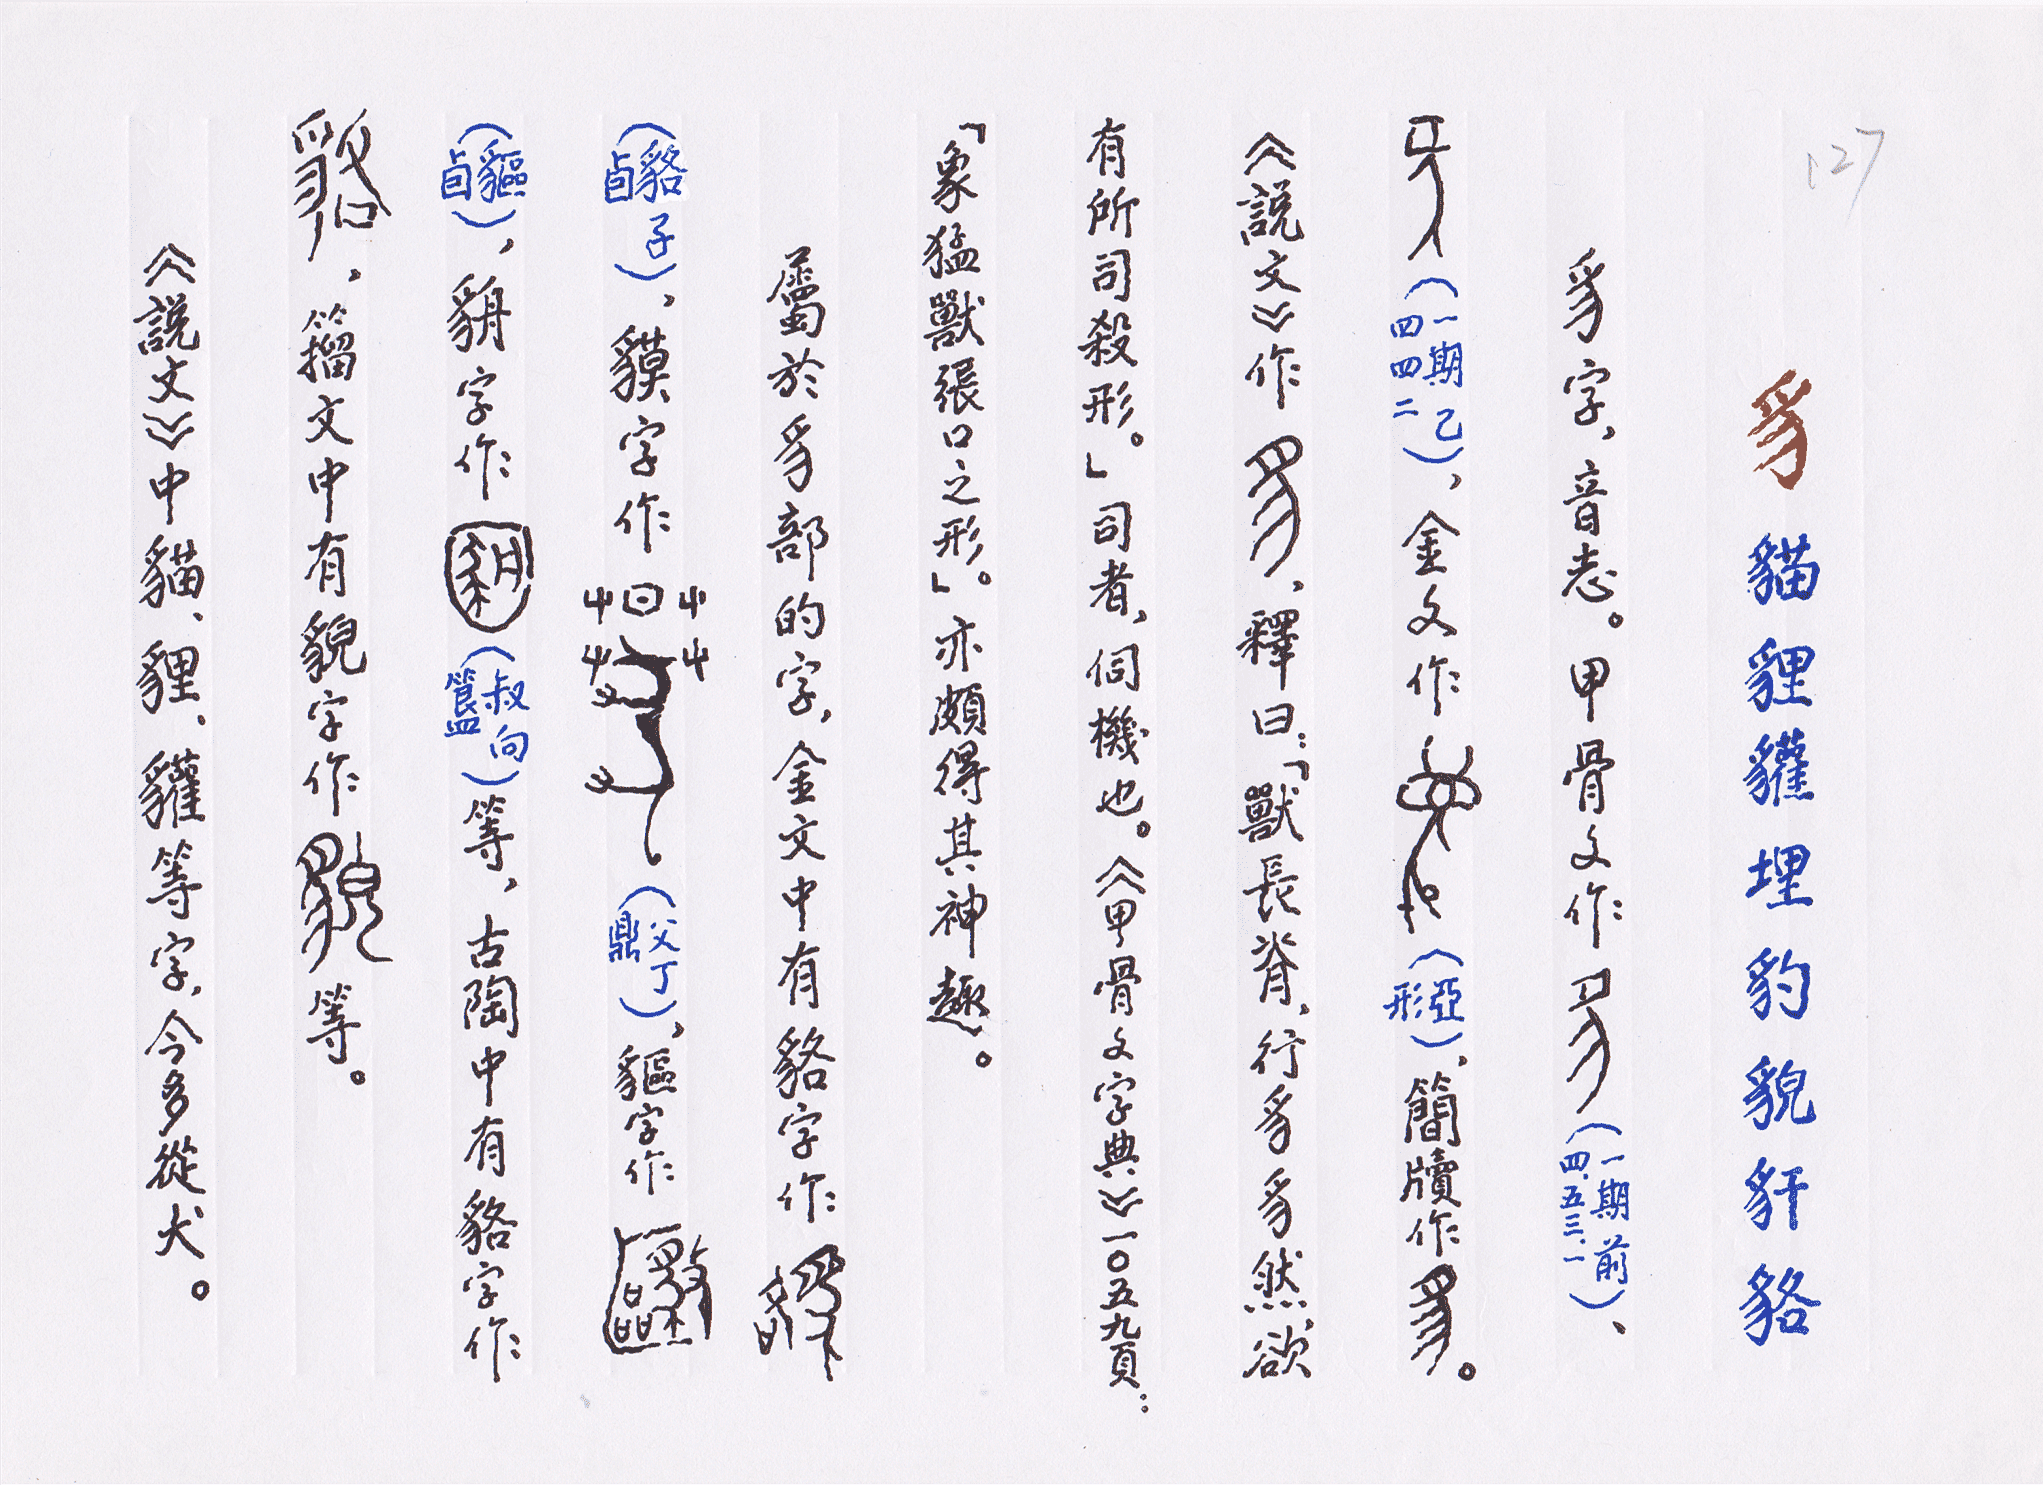 127
豸 貓貍貛埋豹貌豻貉
豸字，音志。甲骨文作（一期前四.五三.一）、
（一期乙四四四二）、金文作（亞形）、簡牘作。
《説文》作、釋曰：「獸長脊，行豸豸然，欲
有所司殺形。」司者，伺機也。《甲骨文字典》一〇五九頁：
「象猛獸張口之形」。亦頗得其神趣。
屬於豸部的字，金文中有貉字作
（貉子卣）、貘字作（父丁鼎）、貙字作
（貙卣），貈字作（叔向簋）等，古陶中有貉字作
、籀文中有貌字作等。
《説文》中貓、貍、貛等字，今多從犬。